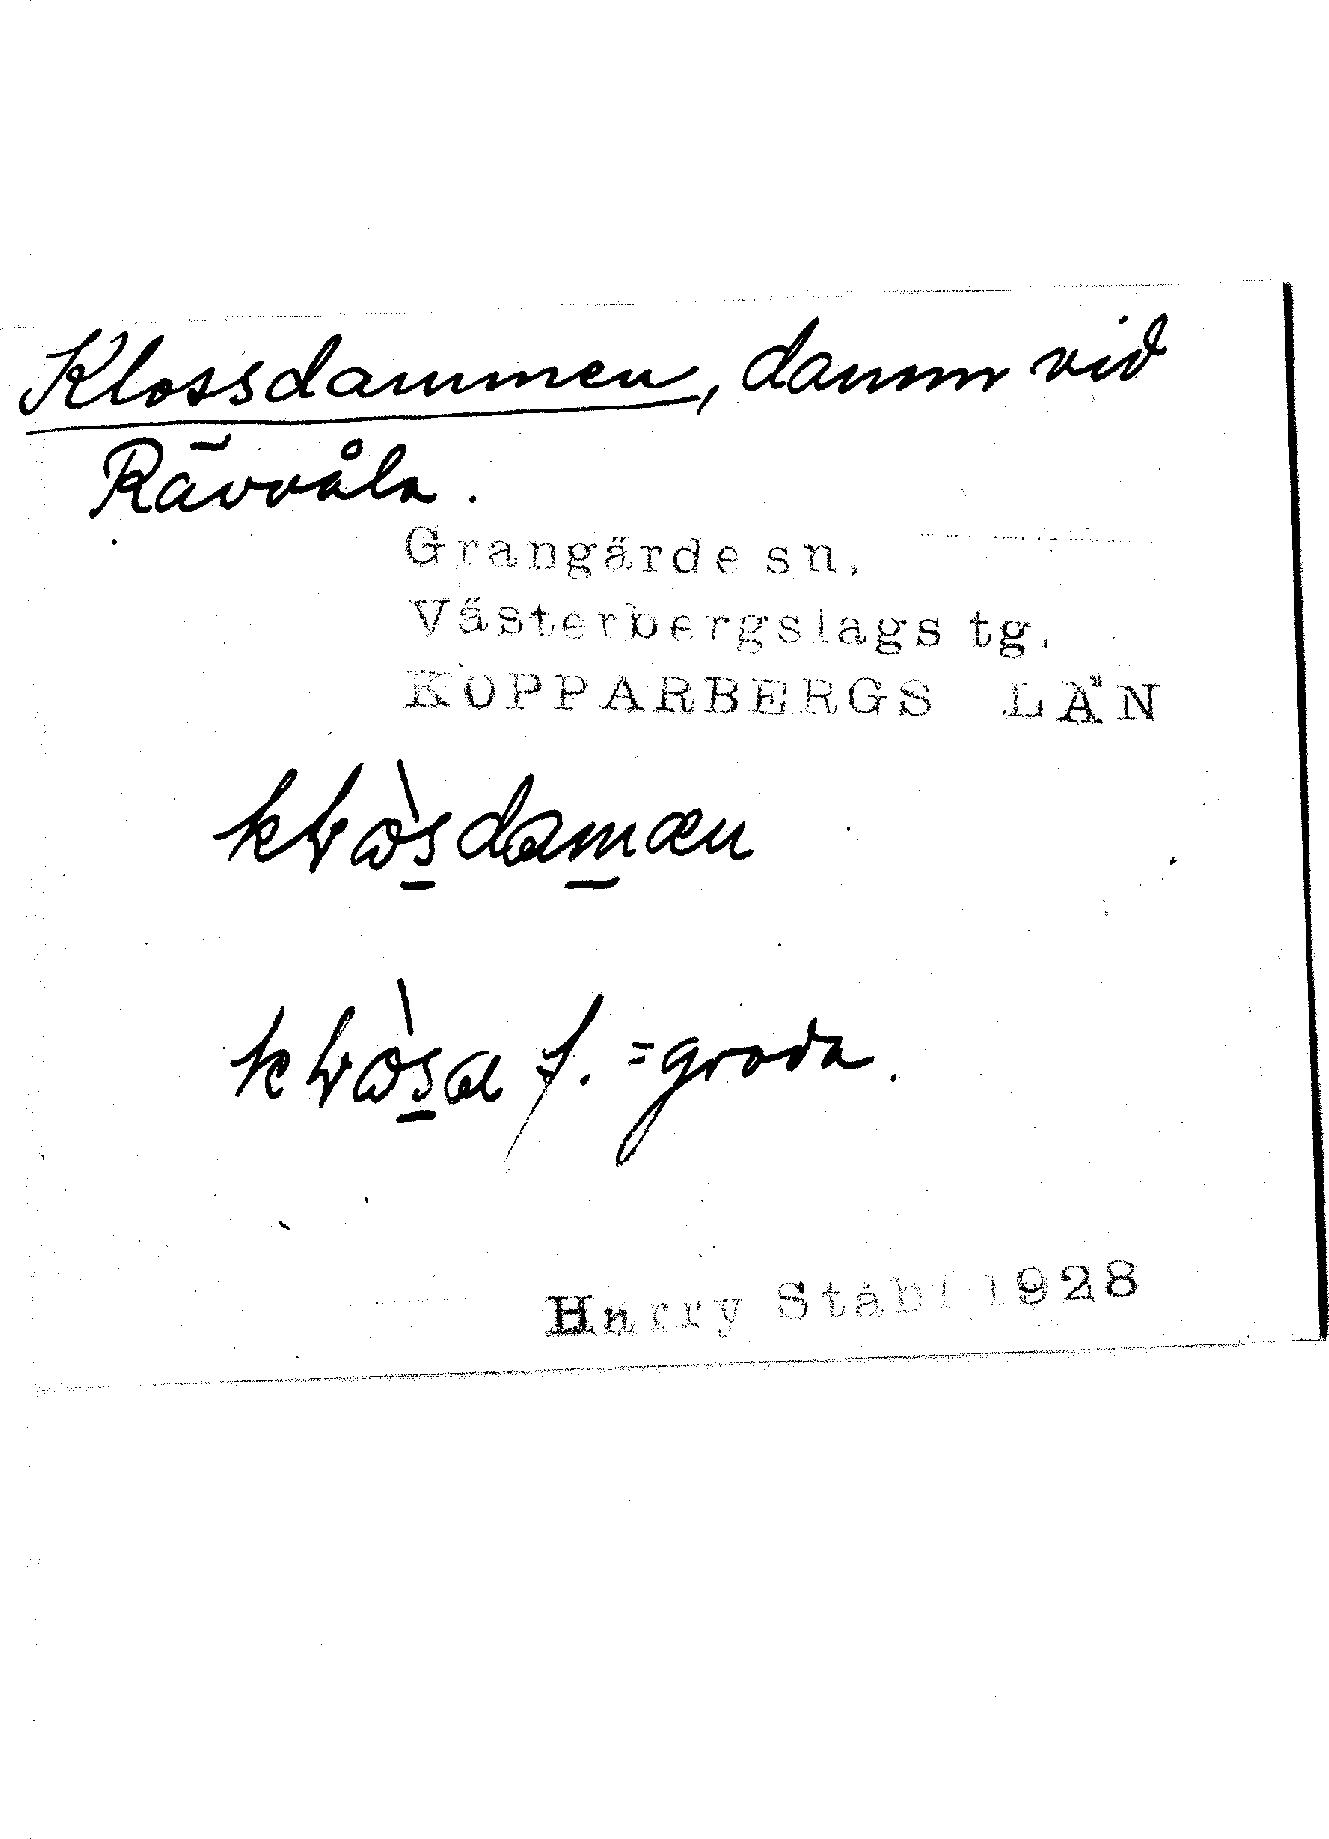 Klossdammen, damm vid
Rävvåla.
Grangärde sn.
Västerbergslags tg.
KOPPARBERGS LÄN
kɫɷ̀s̱dam̱æn
kɫɷ̀s̱a f. =groda.
Harry Ståhl 1928